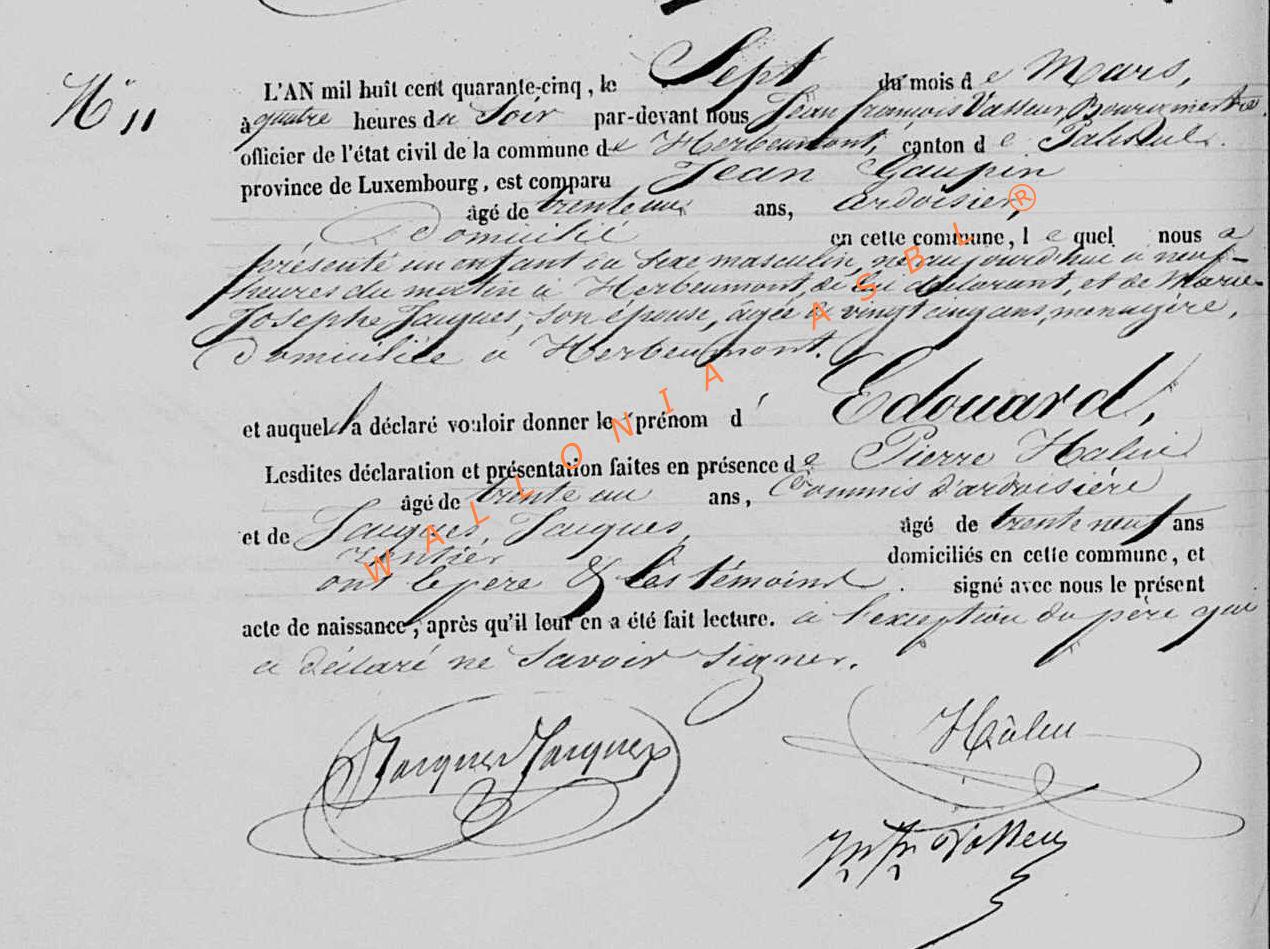 N° 11
L'AN mil huit cent quarante-cinq, le Sept du mois de Mars,
à quatre heures du Soir par-devant nous Jean françois Vasseur Bourgmestre,
officier de l'état civil de la commune de Herbeumont, canton de Paliseul.
province de Luxembourg, est comparu Jean Gaupin
âgé de trente un ans, ardoisier,
Domicilié en cette commune, lequel nous a
présenté un enfant du Sexe masculin, né aujourd'hui à neuf
heures du matin à Herbeumont, de lui déclarant, et de Marie
Josephe Jacques, son épouse, âgée de vingt cinq ans, menagère,
Domiciliée à Herbeumont.
et auquel il a déclaré vouloir donner le prénom d'Edouard,
Lesdites déclaration et présentation faites en présence de Pierre Halin
âgé de trente un ans, Commis d'ardoisière
et de Jacques, Jacques, âgé de trente neuf ans
rentier domiciliés en cette commune, et
ont le père & les témoins signé avec nous le présent
acte de naissance, après qu'il leur en a été fait lecture. à l'exception du père qui
a déclaré ne Savoir Signer.
Jacques Jacques
Hâlin
WALLONIA ASBL ®